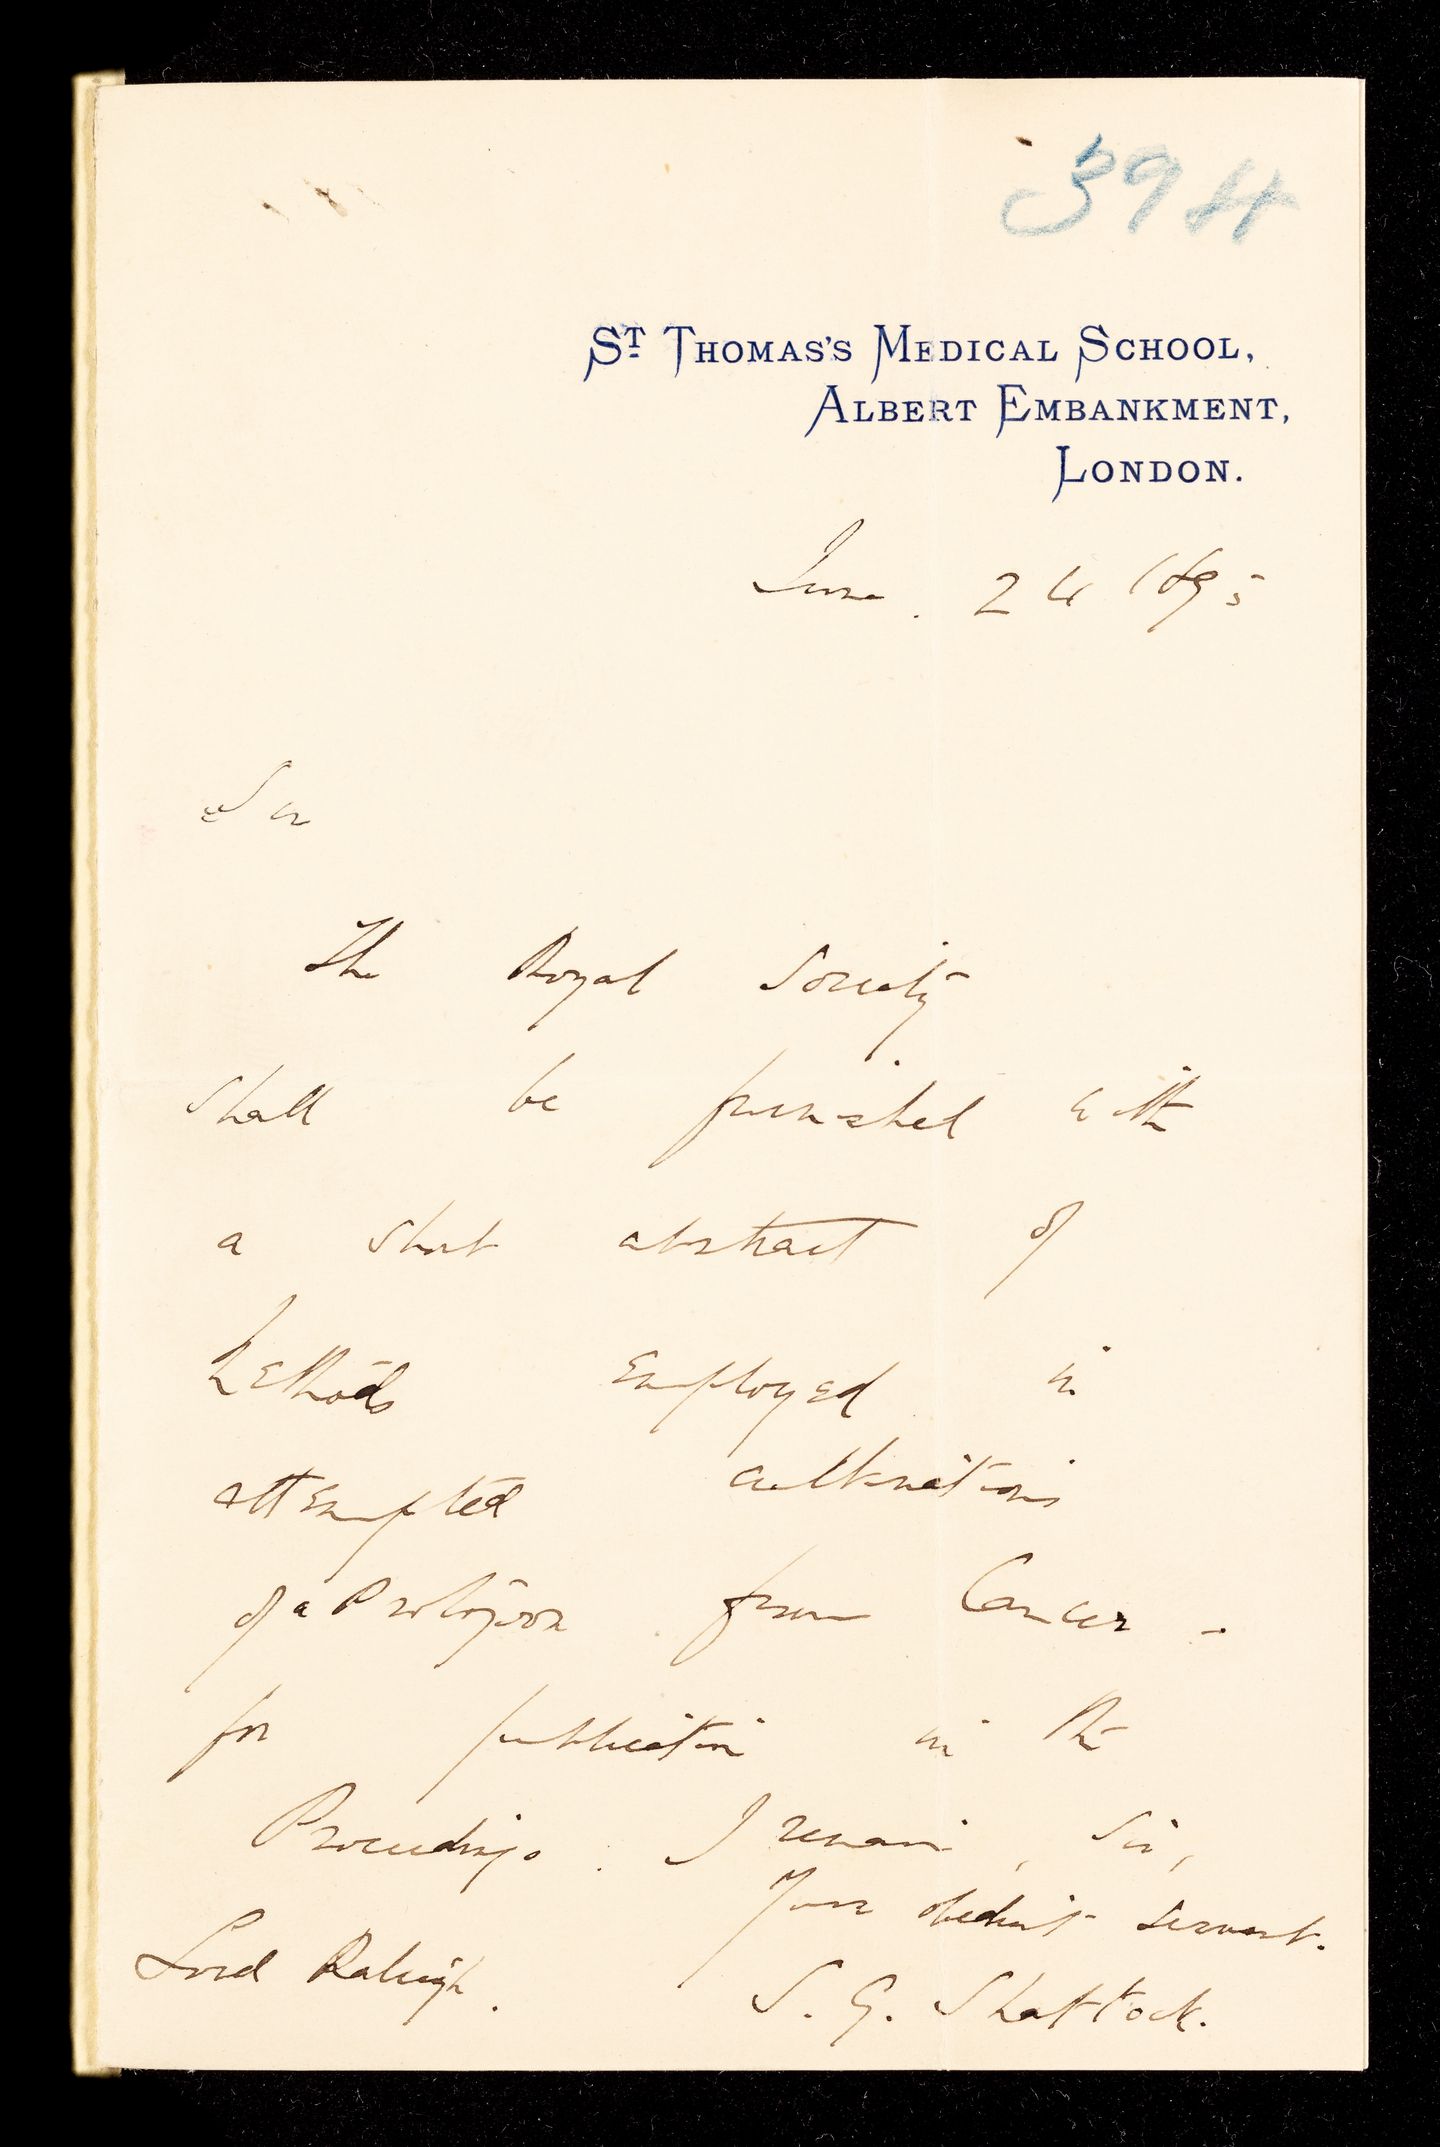 394
ST THOMAS'S MEDICAL SCHOOL,
ALBERT EMBANKMENT,
LONDON.
June. 24 1895
Sir
The Royal Society
shall be furnished with
a short abstract of
methods employed in
attempted cultivations
of a Protozoon from Cancer -
for publication in the
Proceedings. I remain, Sir,
Your obedient servant.
Lord Raleigh.
S. G. Shattock.